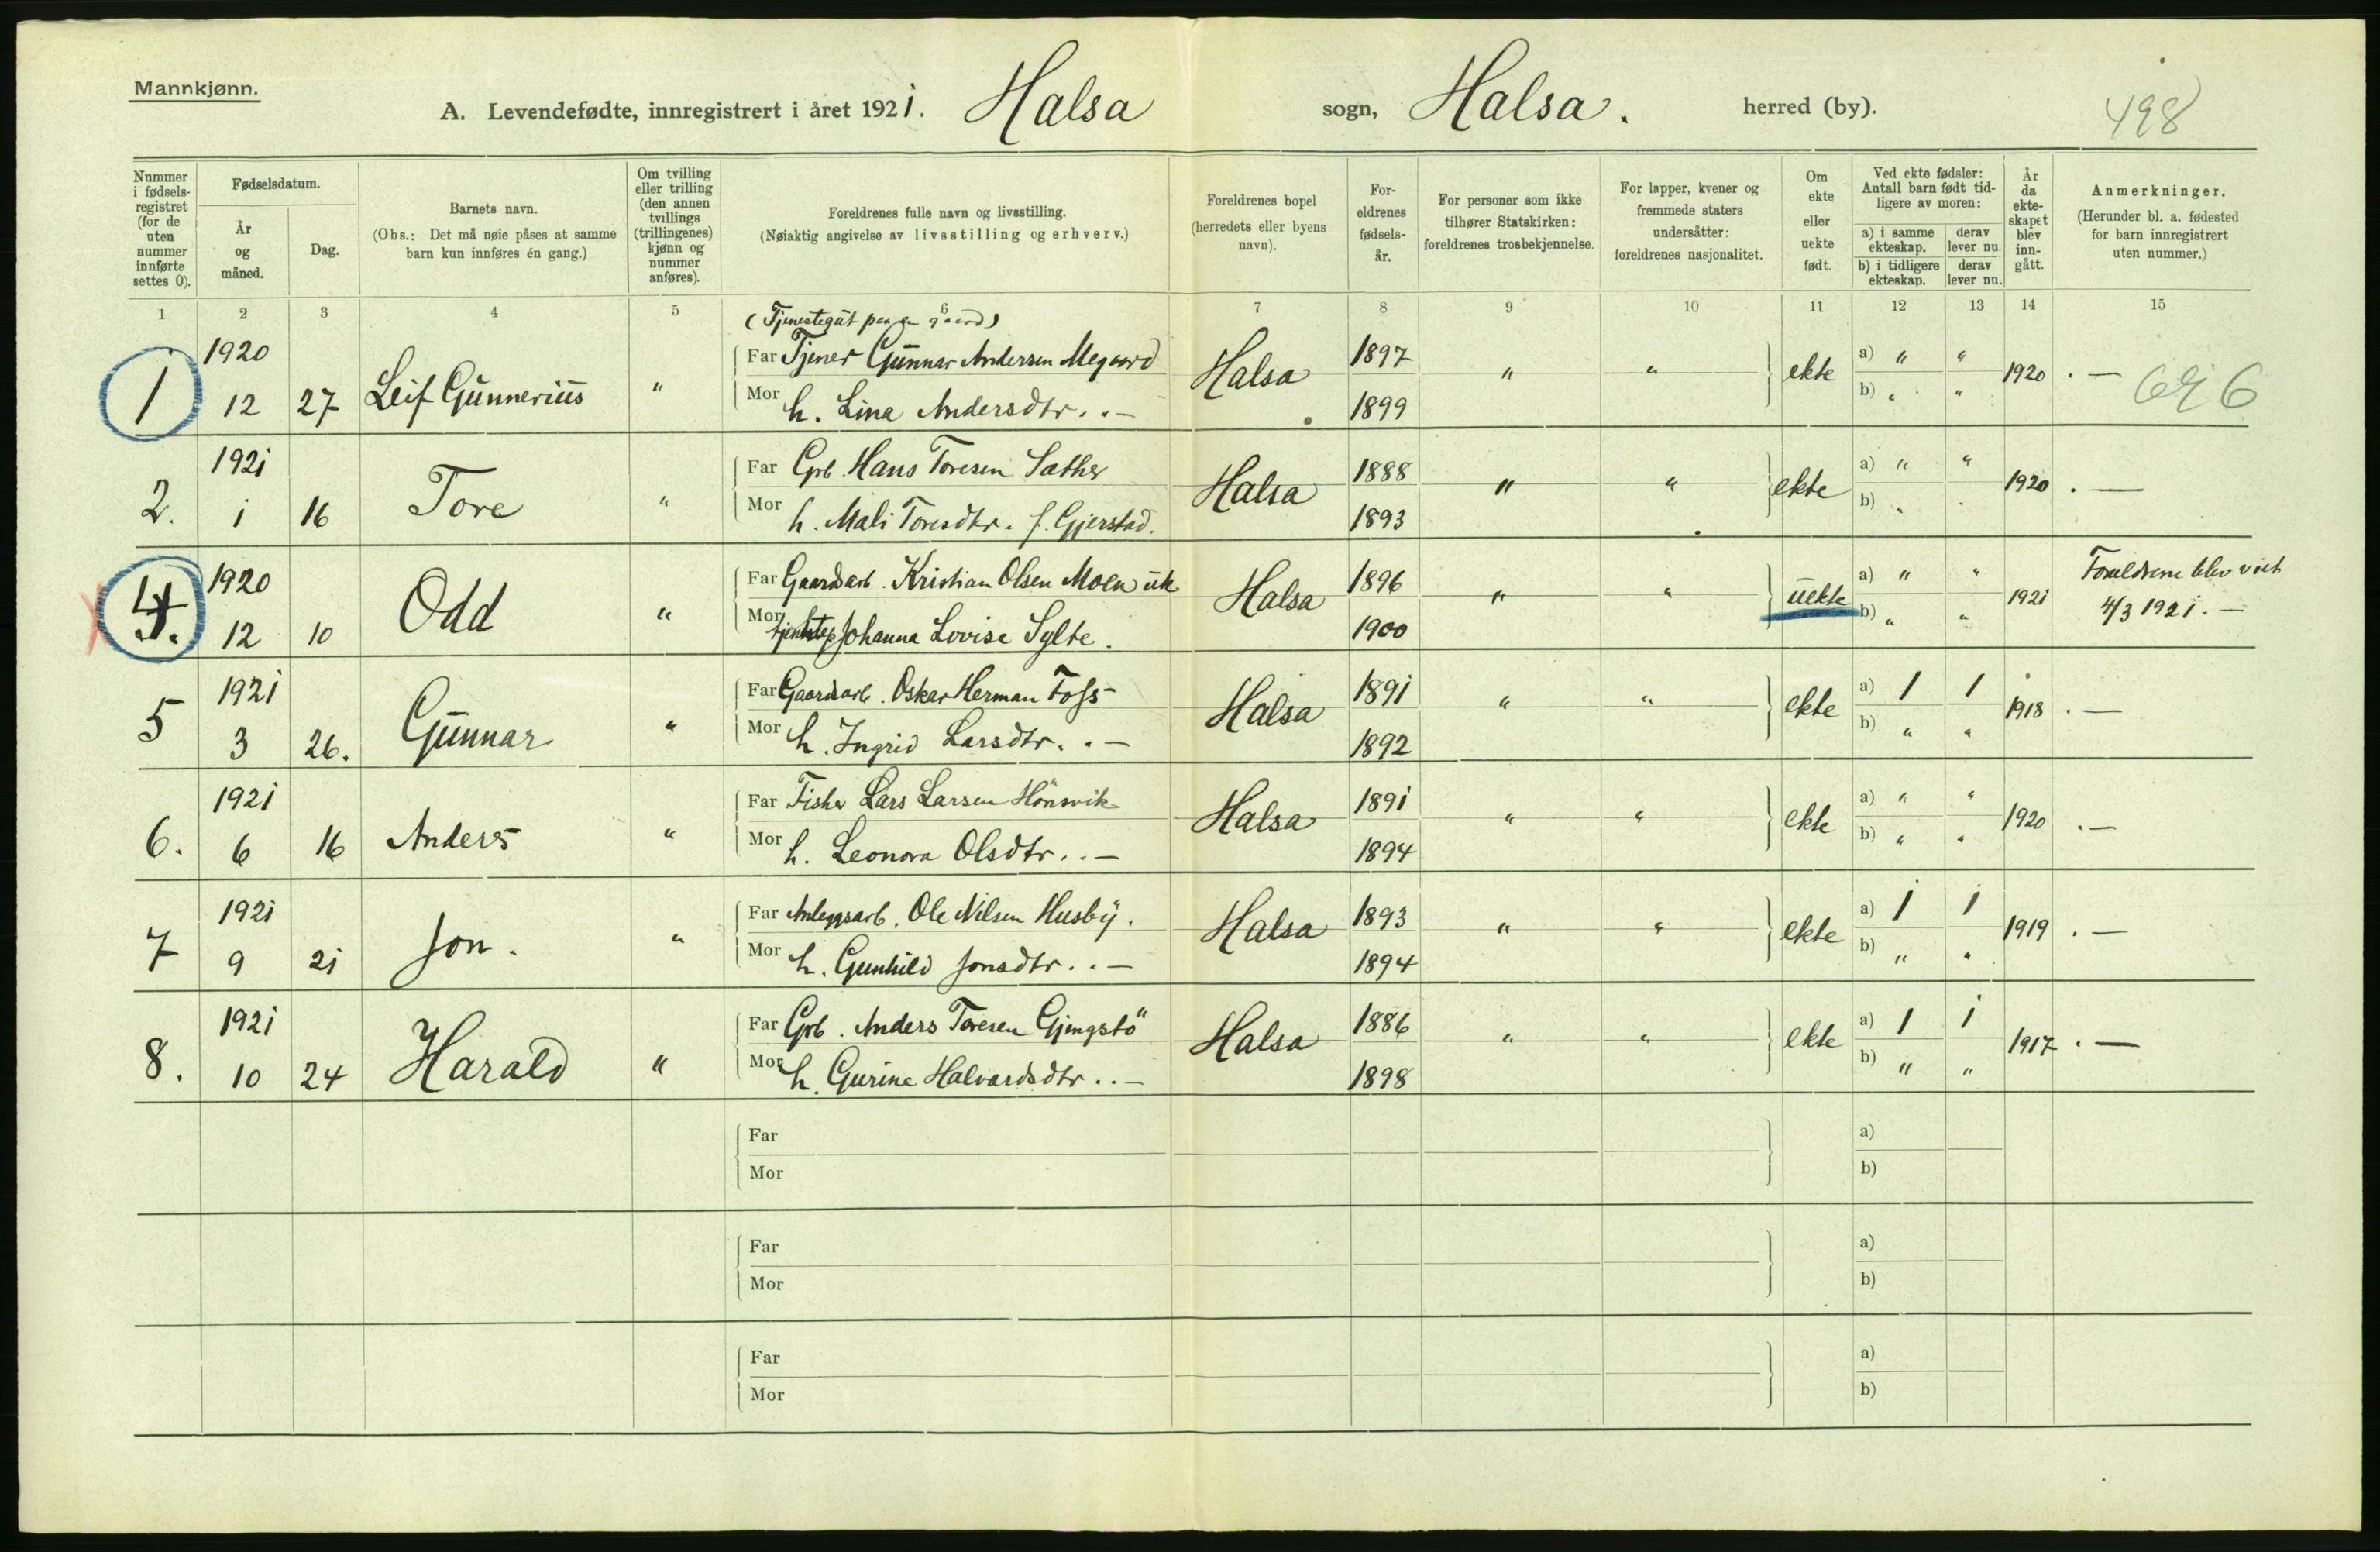 Mannkjønn.
A. Levendefødte, innregistrert i året 1921. Halsa sogn, Halsa. herred (by). 498
Nummer i fødsels-registret (for de uten nummer innførte settes 0).
Fødselsdatum.
År og måned.
Dag.
Barnets navn.
(Obs.: Det må nøie påses at samme barn kun innføres én gang.)
Om tvilling eller trilling (den annen tvillings (trillingenes) kjønn og nummer anføres).
Foreldrenes fulle navn og livsstilling.
(Nøiaktig angivelse av livsstilling og erhverv.)
Foreldrenes bopel (herredets eller byens navn).
For-eldrenes fødsels-år.
For personer som ikke tilhører Statskirken: foreldrenes trosbekjennelse.
For lapper, kvener og fremmede staters undersåtter: foreldrenes nasjonalitet.
Om ekte eller uekte født.
Ved ekte fødsler: Antall barn født tid-ligere av moren:
a) i samme ekteskap.
derav lever nu.
b) i tidligere ekteskap.
derav lever nu.
År da ekte-skapet blev inn-gått.
Anmerkninger.
(Herunder bl. a. fødested for barn innregistrert uten nummer.)
1 2 3 4 5 6 7 8 9 10 11 12 13 14 15
(Tjenestegut paa en gaard)
1920 Far Tjener Gunnar Andersen Megaard 1897 a) " "
1 12 27 Leif Gunnerius " Halsa " " ekte 1920 . —
Mor h. Lina Andersdtr. . — 1899 b) " "
1921 Far Grb. Hans Toresen Sæther 1888 a) " "
2. 1 16 Tore " Halsa " " ekte 1920 . —
Mor h. Mali Toresdtr. f. Gjerstad. 1893 b) "
1920 Far Gaardsarb. Kristian Olsen Moen uk 1896 a) " " Foreldrene blev viet
4. 12 10 Odd " Halsa " " uekte 1921 4/3 1921. —
Mor Johanna Lovise Sylte. 1900 b) " "
1921 Far Gaardsarb. Oskar Herman Foss 1891 a) 1 1
5 3 26. Gunnar " Halsa " " ekte 1918 . —
Mor h. Ingrid Larsdtr. . — 1892 b) " "
1921 Far Fisker Lars Larsen Hönsvik 1891 a) " "
6. 6 16 Anders " Halsa " " ekte 1920 . —
Mor h. Leonora Olsdtr. . — 1894 b) " "
1921 Far Anleggsarb. Ole Nilsen Husby. 1893 a) 1 1
7 9 21 Jon. " Halsa " " ekte 1919 . —
Mor h. Gunhild Jonsdtr. . — 1894 b) " "
1921 Far Grb. Anders Toresen Gjengstö 1886 a) 1 1
8. 10 24 Harald " Halsa " " ekte 1917 . —
Mor h. Gurine Halvardsdtr. . — 1898 b) " "
Far a)
Mor b)
Far a)
Mor b)
Far a)
Mor b)